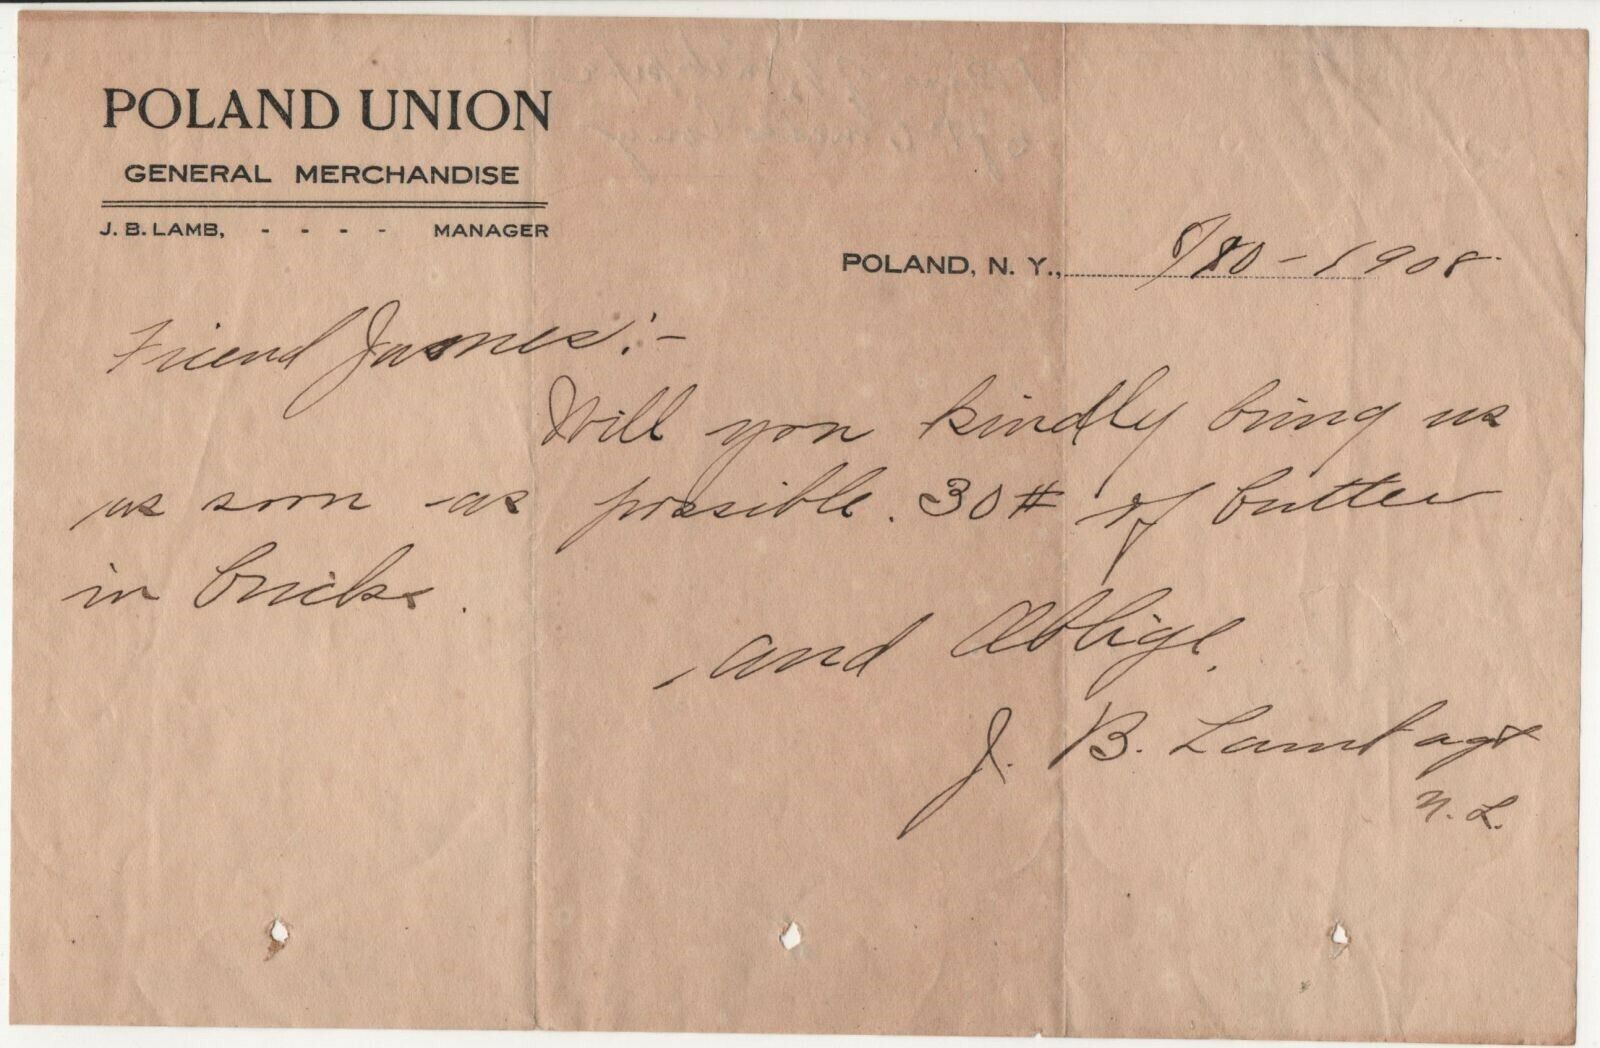 POLAND UNION
GENERAL MERCHANDISE
J. B. LAMB, - - - - MANAGER
POLAND, N. Y., 8/20-1908.
Friend James:-
Will you kindly bring us
as soon as possible. 30# of butter
in bricks.
and Oblige.
J. B. Lamb agt
N. L.